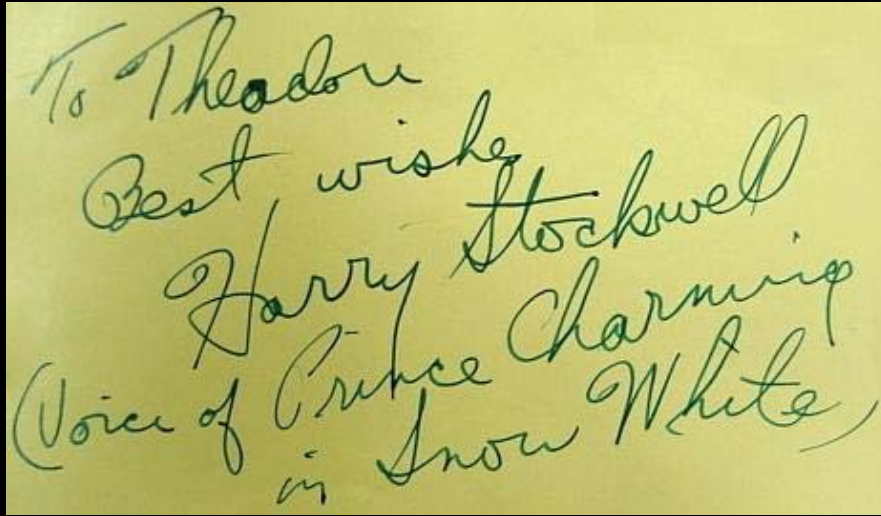 To Theodore
Best wishes
Harry Stockwell
(Voice of Prince Charming
in Snow White)